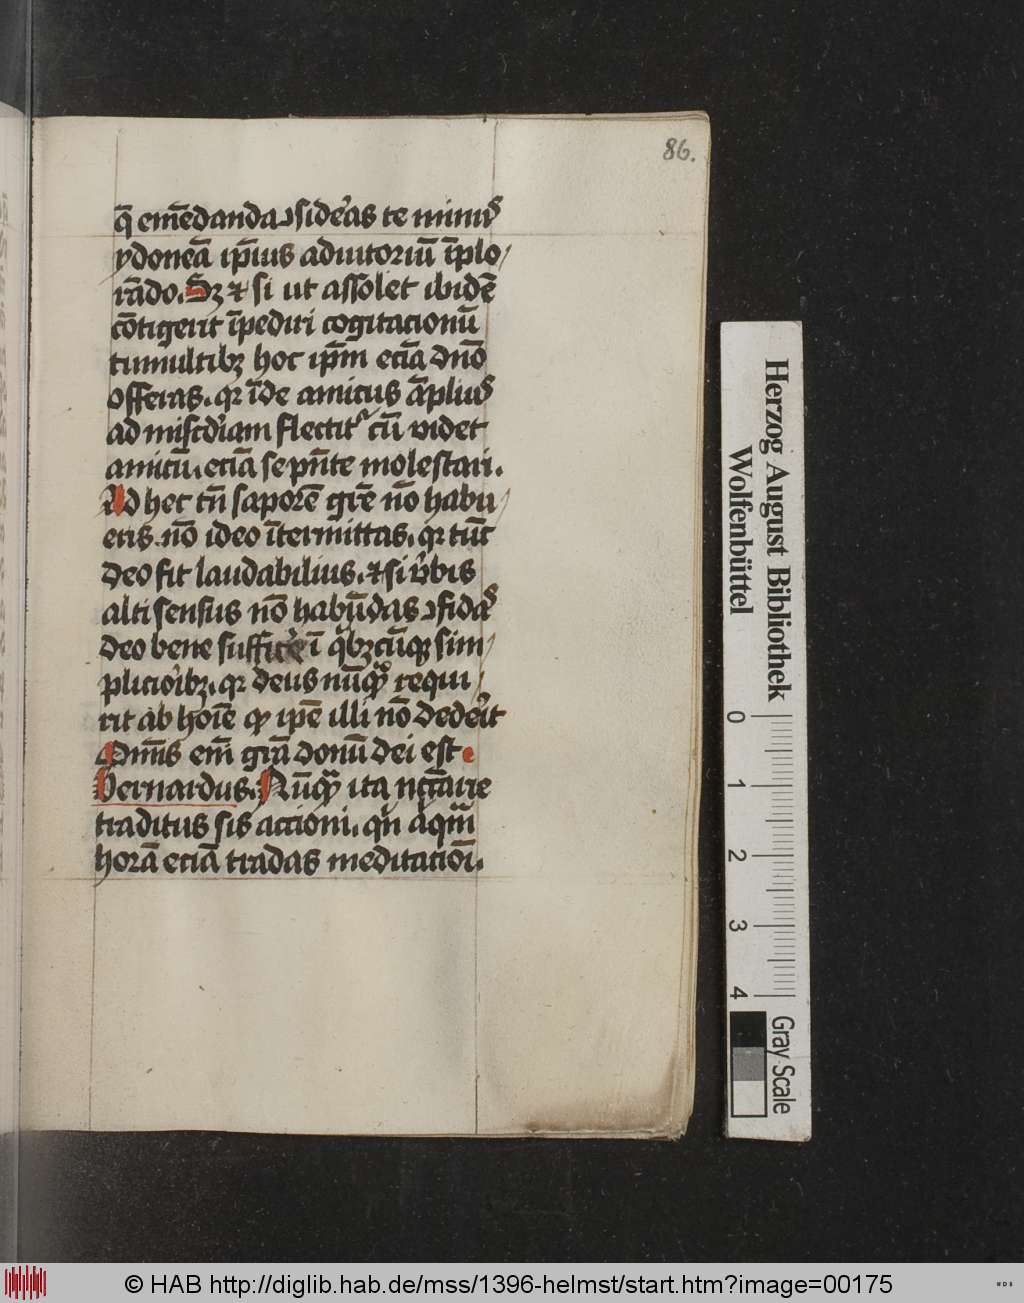 86.
q̄ em̄edanda ꝯsideꝛ̉as te minuꝰ
ydoneā ip̄ius adiutoriū īplo/
rādo. Sꝫ ⁊ si ut assolet ibidē
cōtigerit īpediri cogitacionū
tumultibꝫ hoc ip̄m eciā dn̄o
offeras. qꝛ īde amicus āpliꝰ
ad mis̄cdiam flectitᷣ cū videt
amicū. eciā se pn̄te molestari.
Ad hec tn̄ saporē gr̄e nō habu/
eris. nō ideo ītermittas. qꝛ tūc
deo fit laudabilius. ⁊ si v̓bis
alti sensus nō habūdas ꝯfidaˢ
deo bene suffic̓e ī qͥbꝫcūqꝫ sim/
plicior̓ibꝫ. qꝛ deus nūqͣꝫ requi/
rit ab hoīe qꝫ ipē illi nō dedeīt
Om̄is em̄ gr̄a donū dei est
Bernardus. Nūqͣꝫ ita nccāīre
traditus sis accioni. qn̄ aqͣm
horā eciā tradas meditacioī.
Herzog August Bibliothek
Wolfenbüttel
0 1 2 3 4
Gray Scale
© HAB http://diglib.hab.de/mss/1396-helmst/start.htm?image=00175
WDB